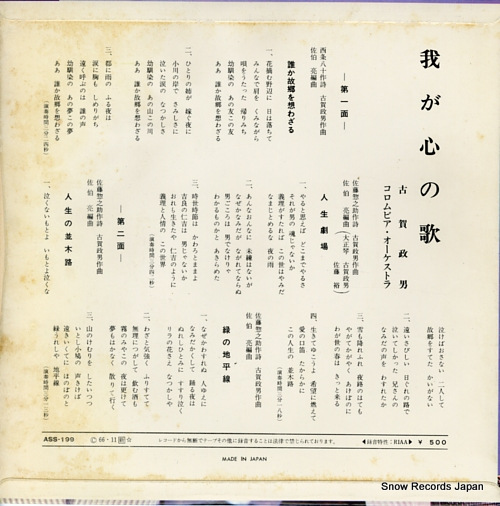 我が心の歌
古賀政男
コロムビア・オーケストラ
―第一面―
西条八十作詩 古賀政男作曲
佐伯 亮編曲
誰か故郷を想わざる
一、花摘む野辺に 日は落ちて
みんなで肩を くみながら
唄をうたった 帰りみち
幼馴染の あの友この友
ああ 誰か故郷を想わざる
二、ひとりの姉が 嫁ぐ夜に
小川の岸で さみしさに
泣いた涙の なつかしさ
幼馴染の あの山この川
ああ 誰か故郷を想わざる
三、都に雨の ふる夜は
涙に胸も しめりがち
遠く呼ぶのは 誰の声
幼馴染の あの夢この夢
ああ 誰か故郷を想わざる
佐藤惣之助作詩 古賀政男作曲
佐伯 亮編曲 (大正琴 古賀政男)
人生劇場
佐藤 裕
一、やると思えば どこまでやるさ
それが男の 魂じゃないか
義理がすたれば この世はやみだ
なまじとめるな 夜の雨
二、あんな女に 未練はないが
なぜか涙が ながれてならぬ
男ごころは 男でなけりゃ
わかるものかと あきらめた
三、時世時節は かわろとままよ
吉良の仁吉は 男じゃないか
おれも生きたや 仁吉のように
義理と人情の この世界
―第二面―
佐藤惣之助作詩 古賀政男作曲
佐伯 亮編曲
人生の並木路
一、泣くないもとよ いもとよ泣くな
泣けばおさない 二人して
故郷をすてた かいがない
二、遠いさびしい 日ぐれの路で
泣いてしかった 兄さんの
なみだの声を わすれたか
三、雪も降れふれ 夜路のはても
やがてかがやく あけぼのに
わが世の春は きっと来る
四、生きてゆこうよ 希望に燃えて
愛の口笛 たからかに
この人生の 並木路
佐藤惣之助作詩 古賀政男作曲
佐伯 亮編曲
緑の地平線
一、なぜかわすれぬ 人ゆえに
なみだかくして 踊る夜は
ぬれしひとみに すすり泣く
リラの花さえ なつかしや
二、わざと気強く ふりすてて
無理につがして 飲む酒も
霧のみやこの 夜は更けて
夢もはかなく 散りて行く
三、山のけむりを したいつつ
いとし小鳩の 声きけば
遠きいくてに ほのぼのと
緑うれしや 地平線
ASS-199
Ⓒ 66・11
レコードから無断でテープその他に録音することは法律で禁じられております。
◀録音特性:RIAA▶
¥500
MADE IN JAPAN
Snow Records Japan